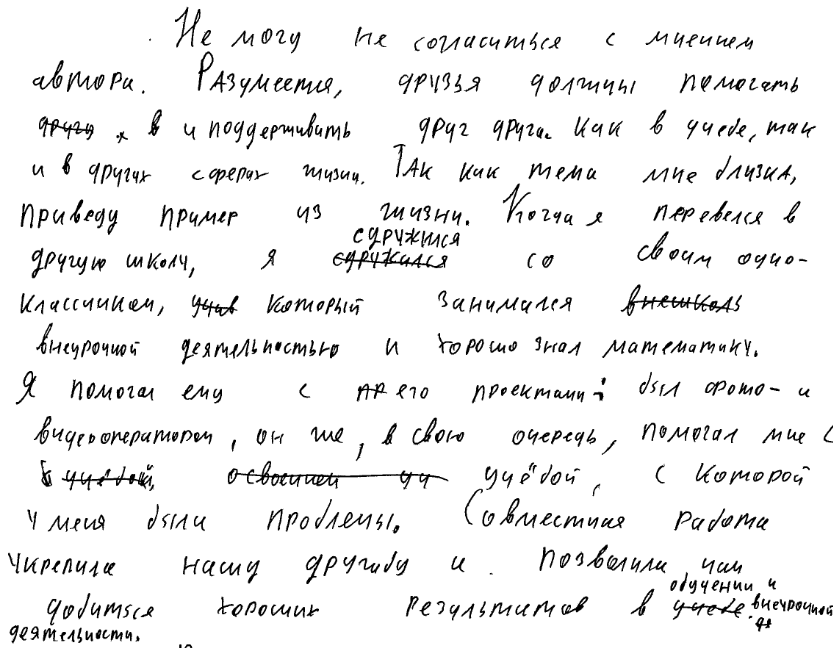 Не могу не согласиться с мнением
автора. Разумеется, друзья должны помогать
и поддерживать друг друга. Как в учебе, так
и в других сферах жизни. Так как тема мне близка,
приведу пример из жизни. Когда я перевелся в
сдружился
другую школу, я сдружился со своим одно-
классником, который занимался
внеурочной деятельностью и хорошо знал математику.
Я помогал ему с его проектами: был фото- и
видеооператором, он же, в свою очередь, помогал мне с
учёбой, с которой
у меня были проблемы. Совместная работа
укрепила нашу дружбу и позволила нам
обучении и
добиться хороших результатов в учебе. внеурочной
деятельности.